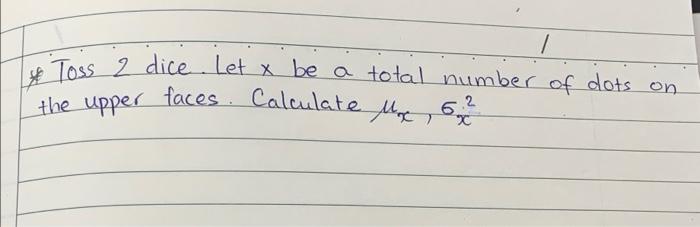 * Toss 2 dice. Let x be a total number of dots on
the upper faces. Calculate μx, σx²